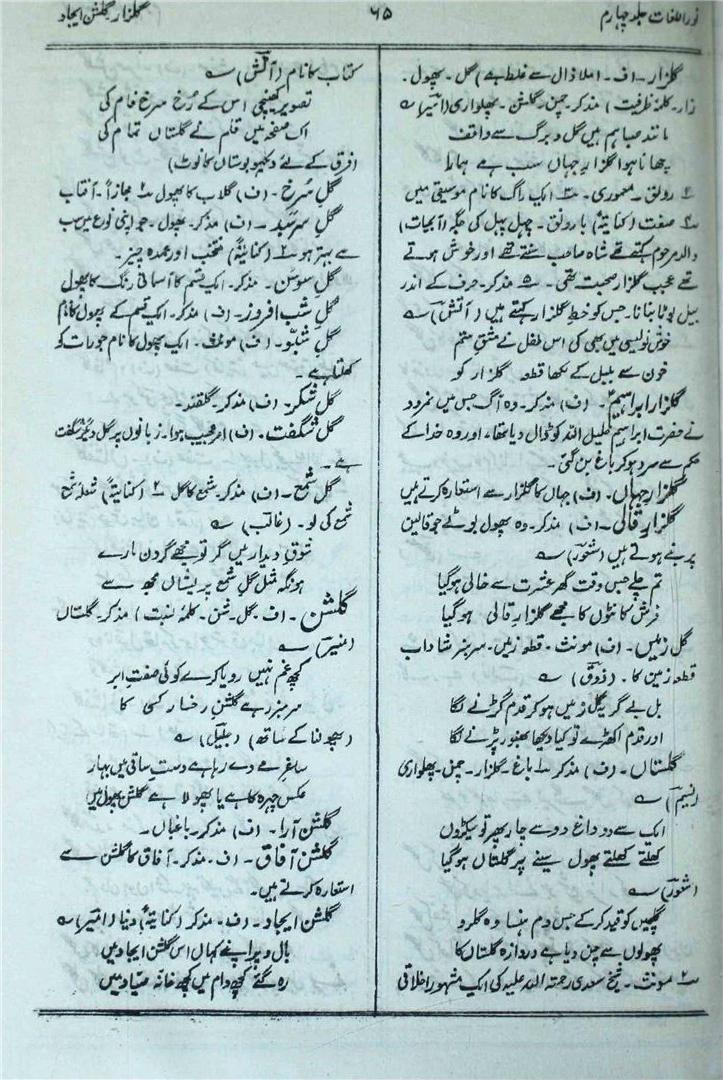 نور اللغات جلد چہارم
۶۵
گلزار گلشن ایجاد
گلزار۔ اف۔ املا ذال سے غلط ہے) گل۔ پھول۔
زار۔ کلمۂ ظرفیت) مذکر۔ چمن۔ گلشن۔ پھلواری (امیرؔ) ؎
مانند صبا ہم ہیں گل و برگ سے واقف
چھانا ہوا گلزارِ جہاں سب ہے ہمارا
۲ رونق۔ معموری۔ ۳ ایک راگ کا نام موسیقی میں
۴ صفت (کنایۃً) با رونق۔ چہل پہل کی جگہ (آبحیات)
والد مرحوم کہتے تھے شاہ صاحب سنتے تھے اور خوش ہوتے
تھے عجب گلزار صحبت تھی۔ ۵ مذکر۔ حرف کے اندر
بیل بوٹا بنانا۔ جس کو خطِ گلزار کہتے ہیں (آتشؔ) ؎
خوش نویسی میں بھی کی اس طفل نے مشقِ ستم
خون سے بلبل کے لکھا قطعہ گلزار کو
گلزارِ ابراہیمؑ۔ (ف) مذکر۔ وہ آگ جس میں نمرود
نے حضرت ابراہیم خلیل اللہ کو ڈال دیا تھا، اور وہ خدا کے
حکم سے سرد ہو کر باغ بن گئی۔
گلزارِ جہاں۔ (ف) جہاں کا گلزار سے استعارہ کرتے ہیں
گلزارِ قالی۔ اف) مذکر۔ وہ پھول بوٹے جو قالین
پر بنے ہوتے ہیں (شعورؔ) ؎
تم چلے جس وقت گھر عشرت سے خالی ہو گیا
فرش کانٹوں کا مجھے گلزار قالی ہو گیا
گل زمیں۔ (ف) مونث۔ قطعۂ زمیں۔ سرسبز شاداب
قطعہ زمین کا۔ (ذوقؔ) ؎
بل بے گریہ گل زمیں ہو کر قدم گڑنے لگا
اور قدم اکھڑے تو کیا دیکھا بھنور پڑنے لگا
گلستاں۔ (ف) مذکر ۱ باغ۔ گلزار۔ چمن۔ پھلواری
(نسیمؔ) ؎
ایک سے دو داغ دو سے چار پھر تو سیکڑوں
کھلتے کھلتے پھول سینے پر گلستاں ہو گیا
(شعورؔ) ؎
گلچیں کو قید کر کے جس دم ہنسا وہ گلرو
پھولوں سے چن دیا ہے دروازہ گلستاں کا
۲ مونث۔ شیخ سعدی رحمۃ اللہ علیہ کی ایک مشہور اخلاقی
کتاب کا نام (آتشؔ) ؎
تصویر کھینچی اس کے رُخ سرخ فام کی
اک صفحہ میں قلم نے گلستاں تمام کی
(فرق کے لئے دیکھو بوستاں کا نوٹ)
گلِ سُرخ۔ (ف) گلاب کا پھول ۲ مجازاً۔ آفتاب
گلِ سرسَبد۔ (ف) مذکر۔ پھول۔ جو اپنی نوع میں سب
سے بہتر ہو ۲ (کنایۃً) منتخب اور عمدہ چیز۔
گلِ سوسَن۔ مذکر۔ ایک قسم کا آسمانی رنگ کا پھول
گلِ شب افروز۔ (ف) مذکر۔ ایک قسم کے پھول کا نام
گلِ شبّو۔ (ف) مونث۔ ایک پھول کا نام جو رات کو
کھلتا ہے۔
گل شکر۔ (ف) مذکر۔ گلقند۔
گل شگفت۔ (ف) امر عجیب ہوا۔ زبانوں پر گل دیگر شگفت
ہے۔
گلِ شمع۔ (ف) مذکر۔ شمع کا گل ۲ (کنایۃً) شعلۂ شمع
شمع کی لو۔ (غالبؔ) ؎
شوقِ دیدار میں گر تو مجھے گردن مارے
ہو نگہ مثلِ گلِ شمع پریشاں مجھ سے
گلشن۔ (ف۔ گل۔ شن۔ کلمۂ نسبت) مذکر۔ گلستاں
(منیرؔ) ؎
کچھ غم نہیں رویا کرے کوئی صفتِ ابر
سرسبز رہے گلشنِ رخسار کسی کا
(پھولنا کے ساتھ) (جلیلؔ) ؎
ساغرِ مے دے رہا ہے دستِ ساقی میں بہار
عکس چہرہ کا ہے یا پھولا ہے گلشن پھول میں
گلشن آرا۔ (ف) مذکر۔ باغباں۔
گلشنِ آفاق۔ اف۔ مذکر۔ آفاق کا گلشن سے
استعارہ کرتے ہیں۔
گلشنِ ایجاد۔ (ف۔ مذکر) (کنایۃً) دنیا (امیرؔ) ؎
بال و پر اپنے کہاں اس گلشنِ ایجاد میں
رہ گئے کچھ دام میں کچھ خانۂ صیاد میں